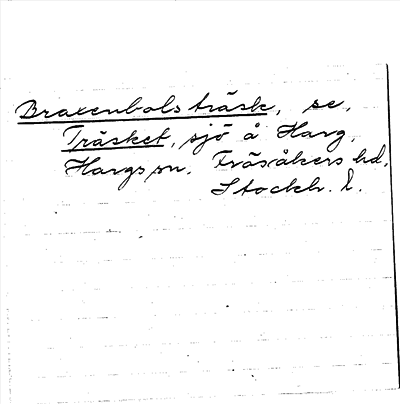 Braxenbols träsk, se,
Träsket, sjö å Harg,
Hargs sn. Fräsåkers hd,
Stockh. l.